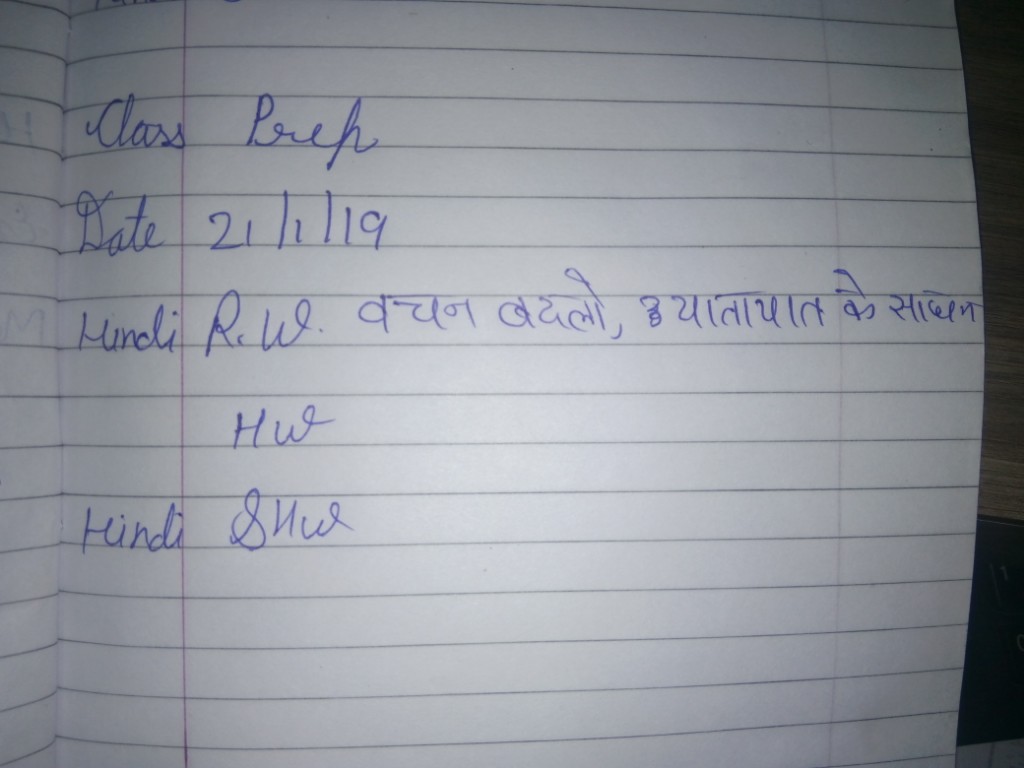 Class Prep
Date 21/1/19
Hindi R.W. वचन बदलो, यातायात के साधन
HW
Hindi SHW